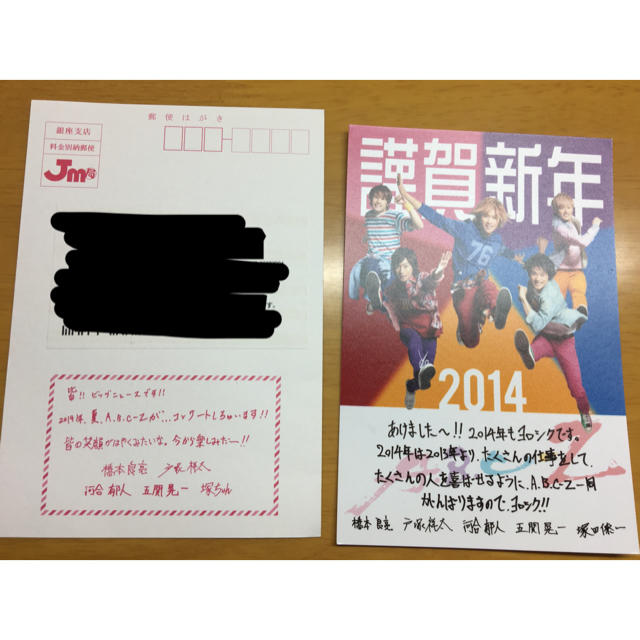 郵便はがき
銀座支店
料金別納郵便
Jm
す。
皆!! ビッグニュースです!!
2014年、夏、A.B.C-Zが…コンサートしちゃいます!!
皆の笑顔がはやくみたいな。今から楽しみだー!!
橋本良亮 戸塚祥太
河合郁人 五関晃一 塚ちゃん
謹賀新年
76
2014
あけました〜!! 2014年もヨロシクです。
2014年は2013年より、たくさんの仕事をして、
たくさんの人を喜ばせるように、A.B.C-Z一同
がんばりますので、ヨロシク!!
橋本良亮 戸塚祥太 河合郁人 五関晃一 塚田僚一